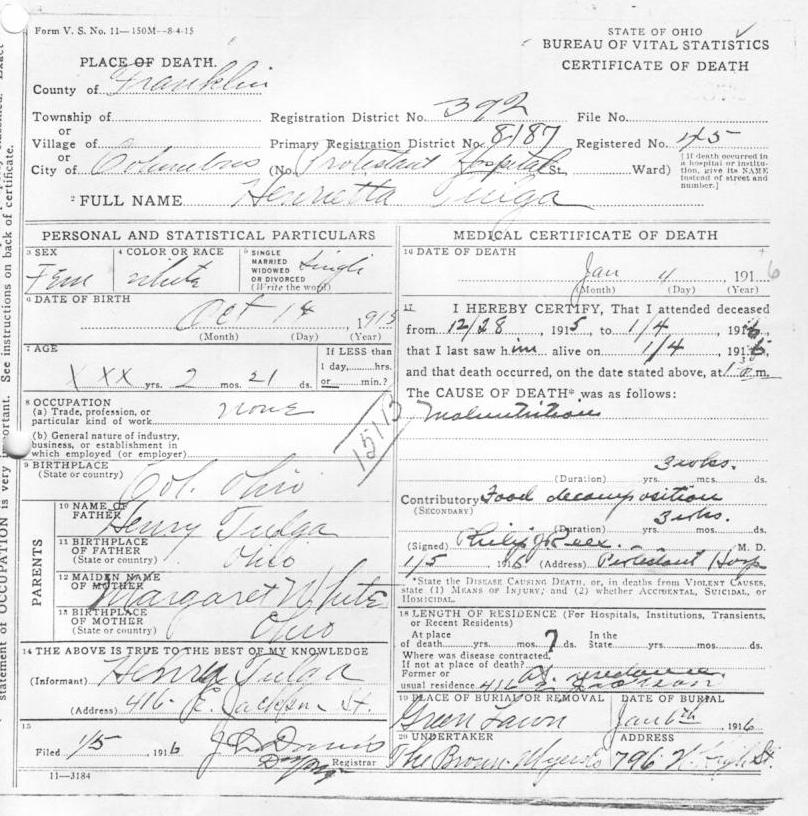 Form V. S. No. 11—150M—8-4-15
STATE OF OHIO
BUREAU OF VITAL STATISTICS
CERTIFICATE OF DEATH
PLACE OF DEATH.
County of Franklin
Township of Registration District No. 392 File No.
or
Village of Primary Registration District No. 8187 Registered No. 45
or
City of Columbus (No. Protestant Hospital St. Ward) [If death occurred in a hospital or institution, give its NAME instead of street and number.]
2 FULL NAME Henrietta Tulga
PERSONAL AND STATISTICAL PARTICULARS
3 SEX Fem 4 COLOR OR RACE White 5 SINGLE MARRIED WIDOWED OR DIVORCED (Write the word) Single
6 DATE OF BIRTH
Oct 14 1915
(Month) (Day) (Year)
7 AGE If LESS than 1 day,....hrs. or....min.?
XXX yrs. 2 mos. 21 ds.
8 OCCUPATION
(a) Trade, profession, or particular kind of work none
(b) General nature of industry, business, or establishment in which employed (or employer)
15113
9 BIRTHPLACE
(State or country) Col. Ohio
PARENTS
10 NAME OF FATHER Henry Tulga
11 BIRTHPLACE OF FATHER (State or country) Ohio
12 MAIDEN NAME OF MOTHER Margaret White
13 BIRTHPLACE OF MOTHER (State or country) Ohio
14 THE ABOVE IS TRUE TO THE BEST OF MY KNOWLEDGE
(Informant) Henry Tulga
(Address) 416 E. Jackson St.
15
Filed 1/5, 1916 Registrar
11—3184
MEDICAL CERTIFICATE OF DEATH
16 DATE OF DEATH
Jan 4 1916
(Month) (Day) (Year)
17 I HEREBY CERTIFY, That I attended deceased
from 12/28, 1915, to 1/4, 1916
that I last saw him alive on 1/4, 1916
and that death occurred, on the date stated above, at m.
The CAUSE OF DEATH* was as follows:
Malnutrition
3 wks.
(Duration) yrs. mos. ds.
Contributory Food decomposition
(SECONDARY)
3 wks.
(Duration) yrs. mos. ds.
(Signed) Philip J. M. D.
1/5 1916 (Address) Protestant Hosp
*State the DISEASE CAUSING DEATH, or, in deaths from VIOLENT CAUSES, state (1) MEANS OF INJURY; and (2) whether ACCIDENTAL, SUICIDAL, or HOMICIDAL.
18 LENGTH OF RESIDENCE (For Hospitals, Institutions, Transients, or Recent Residents)
At place of death....yrs....mos. 7 ds. In the State....yrs....mos....ds.
Where was disease contracted,
If not at place of death? At residence
Former or
usual residence 416 E Jackson
19 PLACE OF BURIAL OR REMOVAL DATE OF BURIAL
Green Lawn Jan 6th, 1916
20 UNDERTAKER ADDRESS
The Brown Myers Co 796 N. High St.
statement of OCCUPATION is very important. See instructions on back of certificate.